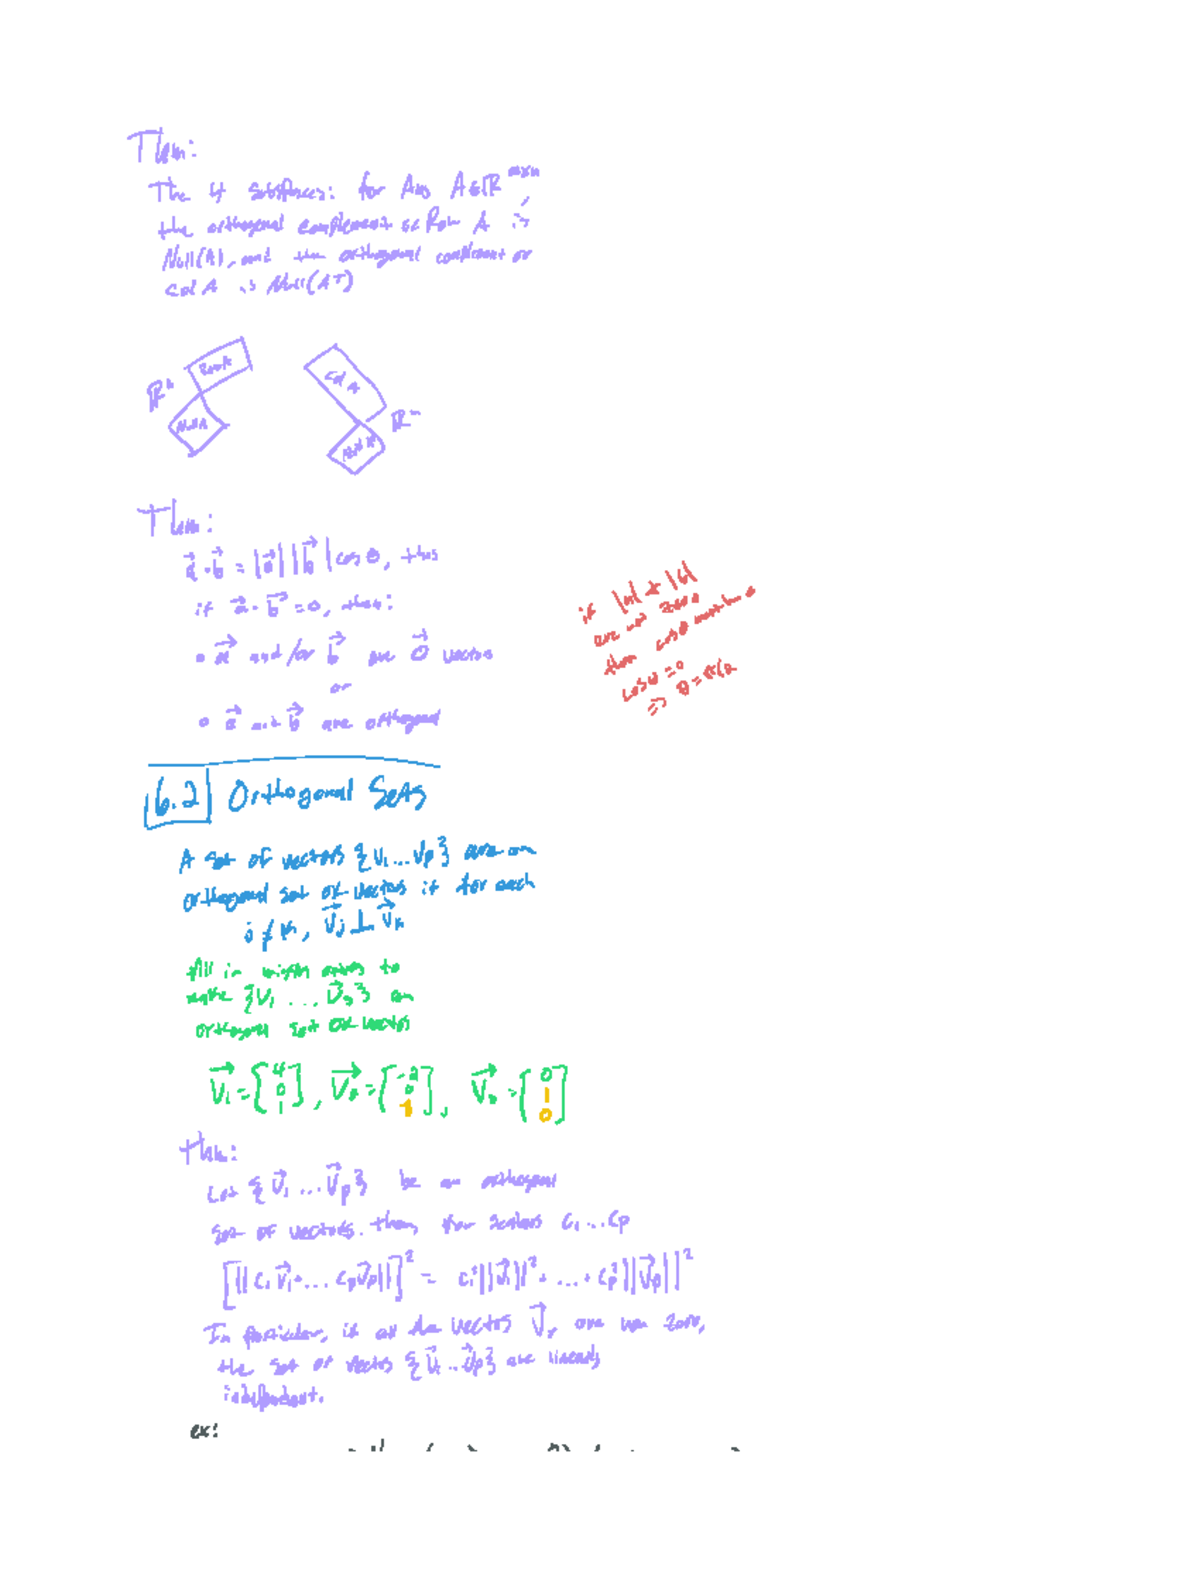 Thm:
The 4 subspaces: for Any A∈ℝ^mxn,
the orthogonal complement of Row A is
Null(A), and the orthogonal complement of
Col A is Null(A^T)
Row A
Col A
ℝ^n
Null A
ℝ^m
Thm:
a⃗·b⃗ = |a⃗||b⃗|cos θ, thus
if a⃗·b⃗ = 0, then:
• a⃗ and/or b⃗ are 0⃗ vectors
or
• a⃗ and b⃗ are orthogonal
if |a| & |b|
are not zero
then cosθ must be 0
cosθ = 0
=> θ = π/2
6.2 Orthogonal Sets
A set of vectors {v₁...v⃗p} are an
orthogonal set of vectors if for each
j ≠ k, v⃗j ⊥ v⃗k
fill in missing entries to
make {v₁ ... v⃗₃} an
orthogonal set of vectors
v⃗₁ = [4 0 1], v⃗₂ = [-2 0 1], v⃗₃ = [0 1 0]
thm:
Let {v⃗₁...v⃗p} be an orthogonal
set of vectors. then, for scalars c₁...cp
[||c₁v⃗₁+...cpv⃗p||]² = c₁²||v⃗₁||²+...+cp²||v⃗p||²
In particular, if all the vectors v⃗ are non zero,
the set of vectors {v⃗₁...v⃗p} are linearly
independent.
ex: